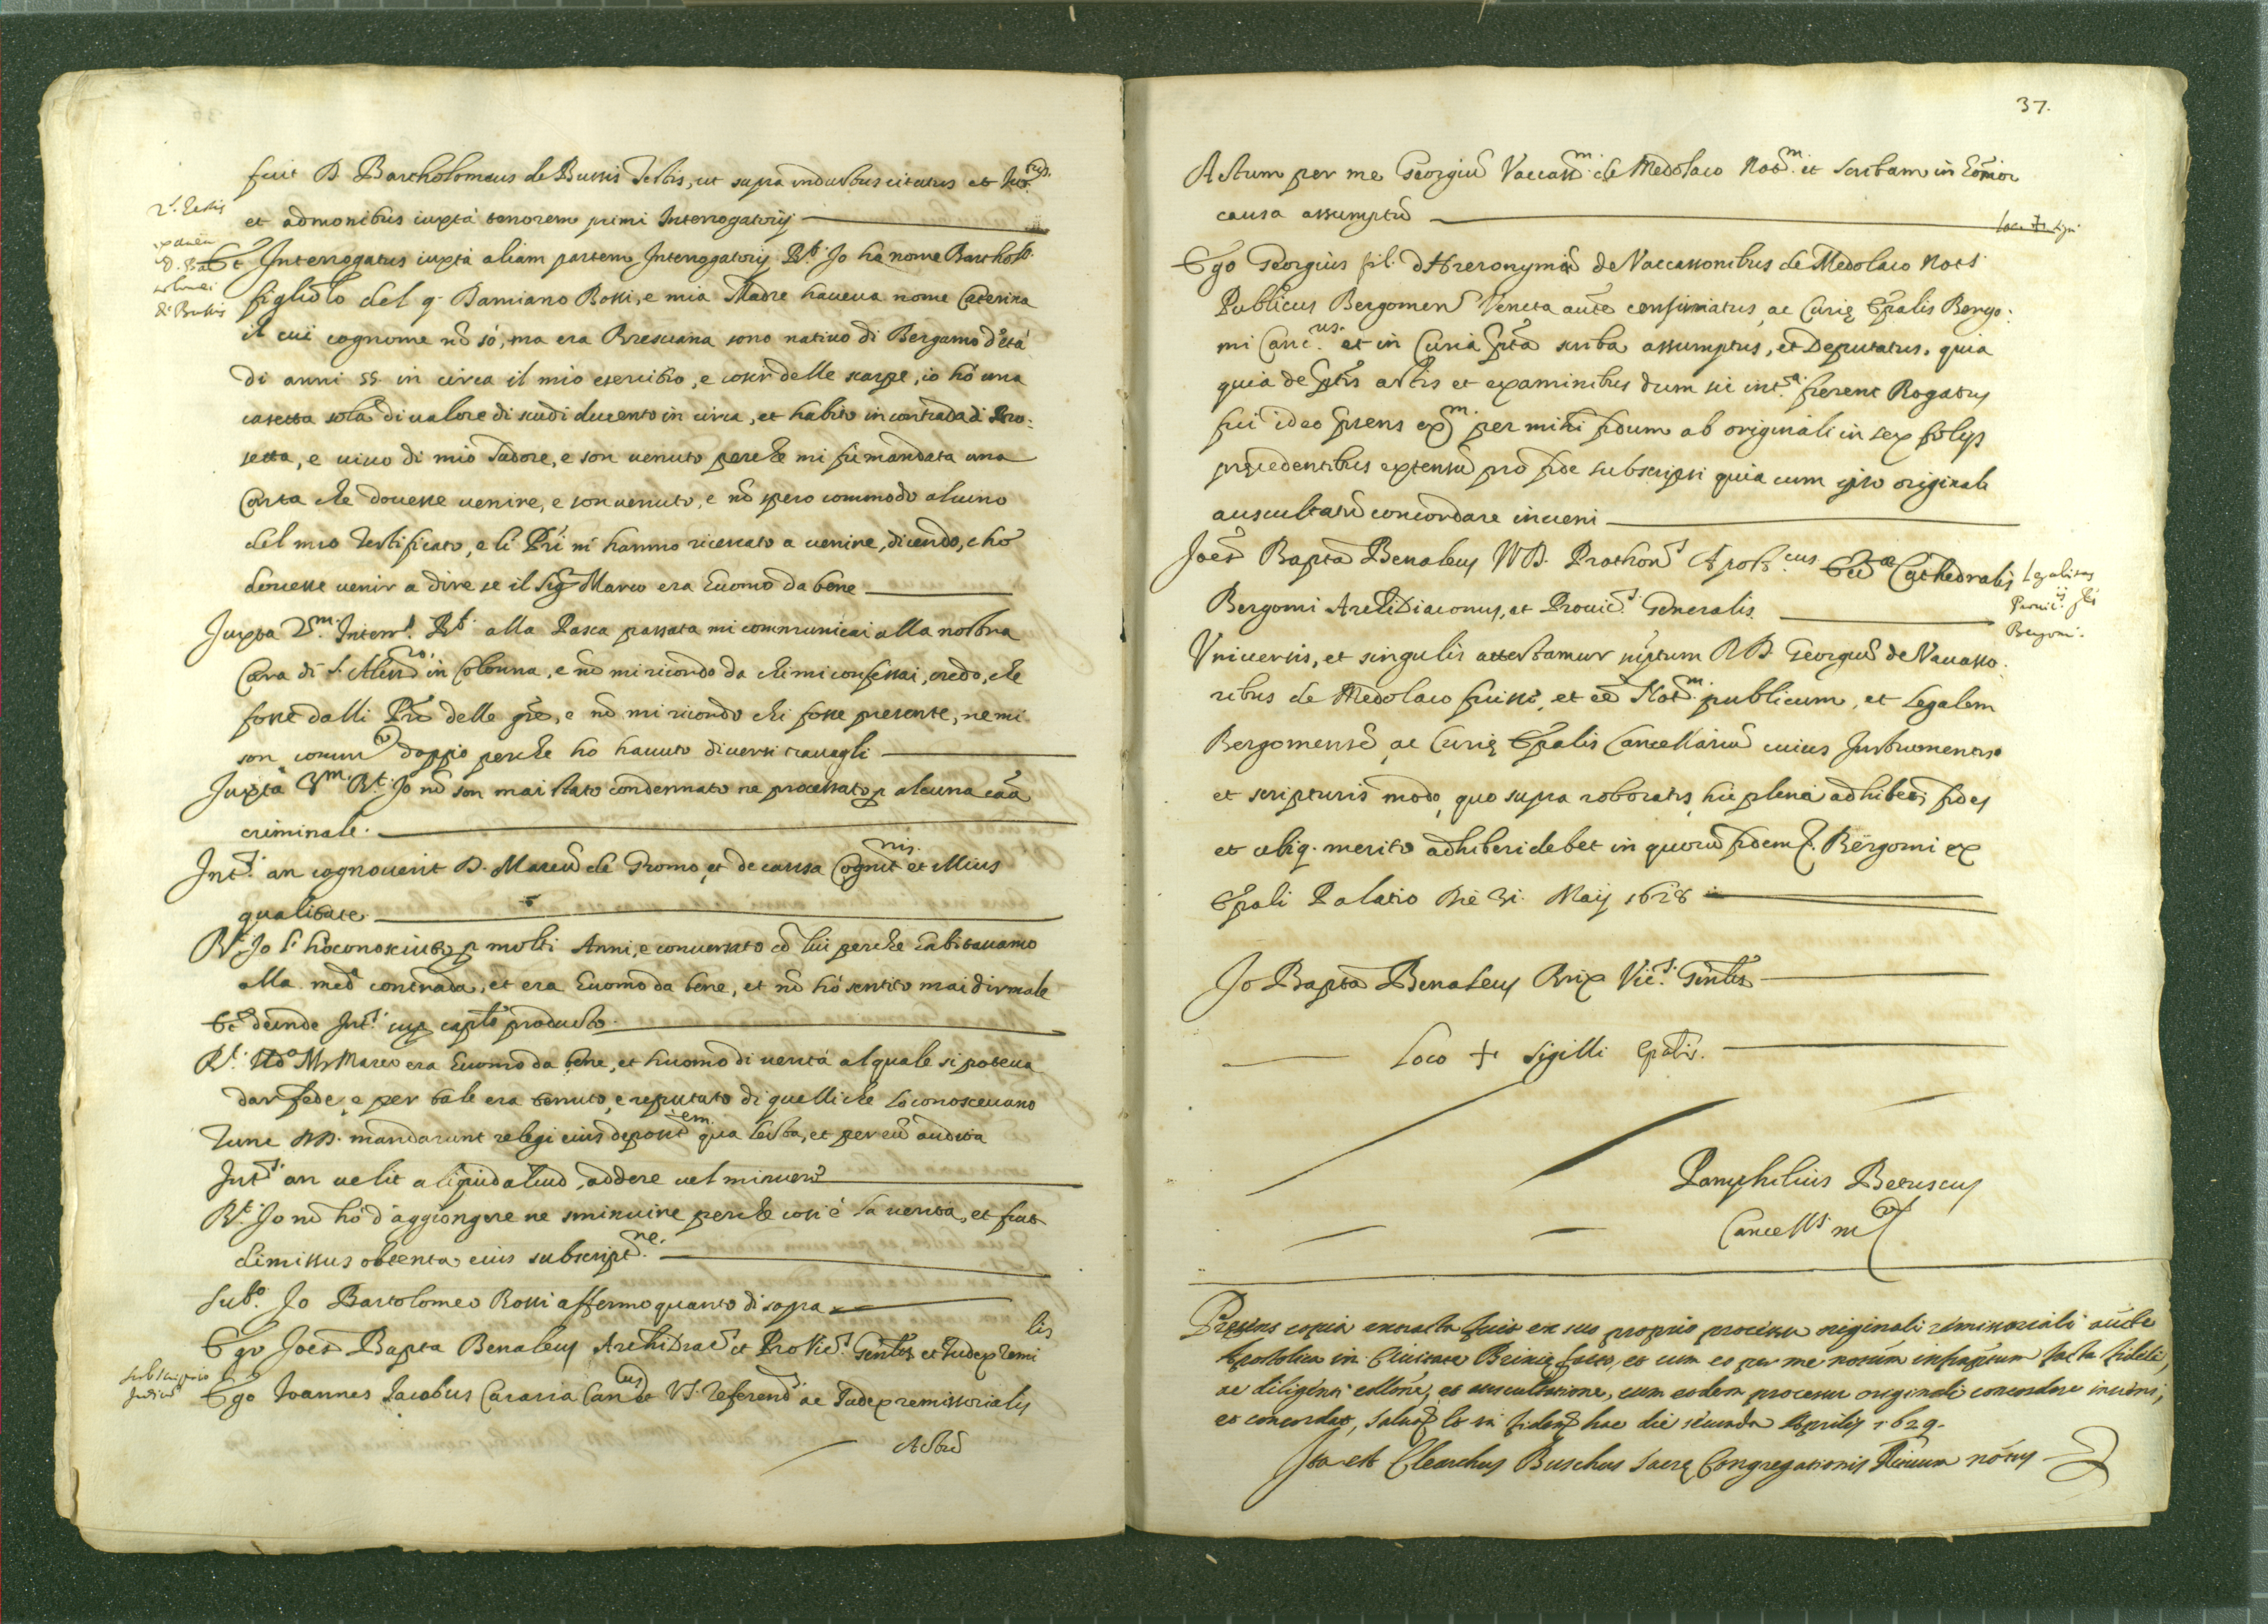 fuit D. Bartholomeus de Bussis Testis, ut supra inductus citatus et Iur.
et admonitus iuxta tenorem primi Interrogatorij
2.s Testis
D. Bar
tolomei
de Bussis
Et Interrogatus iuxta aliam partem Interrogatorij R.t Io hà nome Barthol.o
figliolo del q. Damiano Rossi, e mia Madre haueua nome Caterina
il cui cognome nõ só, ma era Bresciana sono natiuo di Bergamo d'età
di anni 55 in circa il mio esercitio, e cosir delle scarpe, io hò una
casetta sola di ualore di scudi ducento in circa, et habito in contrada di Bro:
setta, e uiuo di mio sudore, e son uenuto perche mi fù mandata una
Carta che douesse uenire, e son uenuto, e nõ spero commodo alcuno
del mio Testificato, e li Pri m'hanno ricercato a uenire, dicendo, cho
douesse uenir a dire se il Sig. Marco era huomo da bene
Iuxta 2.m Interr. R.t alla Pasca passata mi communicai alla nostra
Cura di S. Aless.ro in Colonna, e nõ mi ricordo da chi mi confessai, credo, che
fosse dalli Pri delle gre, e nõ mi ricordo chi fosse presente, ne mi
son comun.to doppio perche ho hauuto diuersi trauagli
Iuxta 3.m R.t Io nõ son mai stato condennato ne processato p alcuna caã
criminale.
Int.s an cognouerit D. Marcũ de Gromo, et de causa Cognit.nis et illius
qualitate
R.t Io l'hò conosciuto p molti Anni, e conuersato cõ lui perche habitauamo
alla med.a contrada, et era huomo da bene, et nõ hò sentito mai dir male
Et deinde Int.s sup capto producto
R.t Il d.o M. Marco era huomo da bene, et huomo di uerità al quale si poteua
dar fede, e per tale era tenuto, e reputato di quelli che lo conosceuano
Tunc DD. mandarunt relegi eius deposit.em qua lecta, et per eũ audita
Int.s an uelit aliquid aliud, addere uel minuere
R.t Io nõ hò d'aggiongere ne sminuire perche cosi è la uerità, et fuit
dimissus obtenta eius subscript.ne
Sub.o Io Bartolomeo Rossi affermo quanto di sopra
Ego Ioes Bapta Benaleus Archidiac. et Pro Vic.s Gñlis et Iudex remi
lis
Subscriptio
Iudicũ
Ego Ioannes Iacobus Carara Can.cus et V.I. referend. ac Iudex remissorialis
Actũ
37.
Actum per me Georgiũ Vaccass.m de Medolaco Not.m et scribam in
causa assumptũ
Ego Georgius fil. D. Hieronymi de Vaccassonibus de Medolaco Not.s
Publicus Bergomen. Veneta aucte confirmatus, ac Curię Epalis Bergo:
mi Canc.us et in Curia pta scriba assumptus, et Deputatus, quia
quia de ptis actis et examinibus dum sic int.a fierent Rogatus
fui ideo pñens ex.m per mihi fidum ab originali in sex folijs
pręcedentibus extensũ pro fide subscripsi quia cum ipso originale
auscultatũ concordare inueni
Ioes Bapta Benaleus I.V.D. Prothon. Apost.cus Ecc.ae Cathedralis
Legalitas
Bergomi.
Bergomi Archidiaconus, et Prouic.s Generalis
Vniuersis, et singulis attestamur suptum R.D. Georgiũ de Vacasso:
nibus de Medolaco fuisse, et eẽ Not.m publicum, et Legalem
Bergomensẽ, ac Curię Epalis Cancellariũ cuius Instrumentis
et scripturis modo, quo supra roboratis, hic plena adhibet fides
et ubiq. merito adhiberi debet in quorũ fidem. Bergomi ex
Epali Palatio Die 31. Maij 1628
Io Bapta Benaleus Prix Vic.s Gñlis
Loco + Sigilli Epalis.
Pamphilius Beruscus
Cancell.s m.to
Pręsens copia extracta fuit ex suo proprio processu originali remissoriali aucte
Apostolica in Ciuitate Brixię facto, et cum eo per me notum infraptum facta fideli,
ac diligenti collone, et auscultatione, cum eodem processu originali concordare inueni,
et concordat, saluo. In fidem hac die secunda Aprilis 1629.
Ita est Clearchus Buschus Sacrę Congregationis Rituum notus